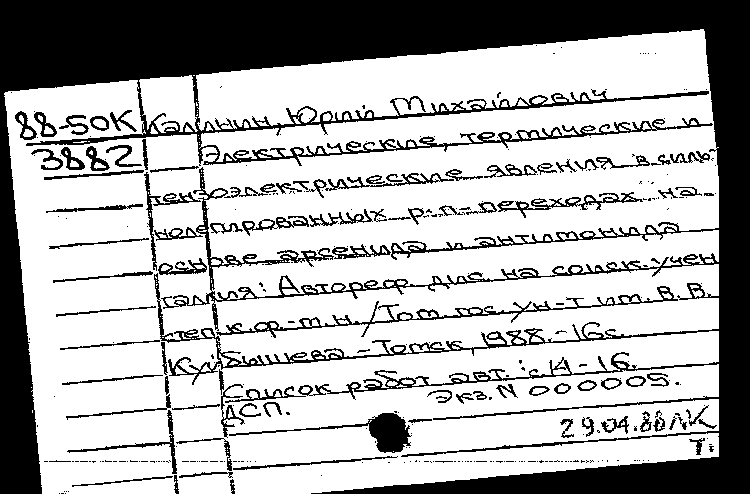 88-50К Калинин, Юрий Михайлович
3882 Электрические, термические и
тензоэлектрические явления в силь-
нолегированных р-п-переходах на
основе арсенида и антимонида
галлия: Автореф. дис. на соиск. учен
степ. к.ф.-т.н. / Том. гос. ун-т им. В. В.
Куйбышева - Томск, 1988. - 16с.
Список работ авт.: с. 14 - 16.
ДСП. Экз. N 000005.
29.04.88 ЛК